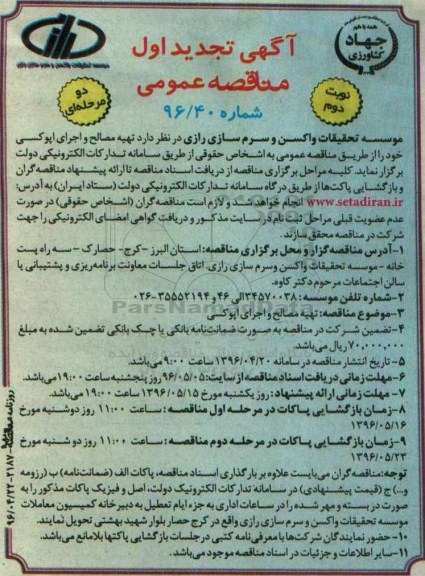 جهاد
کشاورزی
موسسه تحقیقات واکسن و سرم سازی رازی
آگهی تجدید اول
مناقصه عمومی
شماره ۹۶/۴۰
نوبت دوم
دو مرحله‌ای
موسسه تحقیقات واکسن و سرم سازی رازی در نظر دارد تهیه مصالح و اجرای اپوکسی
خود را از طریق مناقصه عمومی به اشخاص حقوقی از طریق سامانه تدارکات الکترونیکی دولت
برگزار نماید. کلیه مراحل برگزاری مناقصه از دریافت اسناد مناقصه تا ارائه پیشنهاد مناقصه گران
و بازگشایی پاکت‌ها از طریق درگاه سامانه تدارکات الکترونیکی دولت (ستاد ایران) به آدرس:
www.setadiran.ir انجام خواهد شد و لازم است مناقصه گران (اشخاص حقوقی) در صورت
عدم عضویت قبلی مراحل ثبت نام در سایت مذکور و دریافت گواهی امضای الکترونیکی را جهت
شرکت در مناقصه محقق سازند.
۱-آدرس مناقصه گزار و محل برگزاری مناقصه: استان البرز -کرج- حصارک -سه راه پست
خانه - موسسه تحقیقات واکسن وسرم سازی رازی. اتاق جلسات معاونت برنامه‌ریزی و پشتیبانی یا
سالن اجتماعات مرحوم دکتر کاوه.
۲-شماره تلفن موسسه: ۳۴۵۷۰۰۳۸ الی ۴۶ و ۳۵۵۵۲۱۹۴-۰۲۶
۳-موضوع مناقصه: تهیه مصالح و اجرای اپوکی
۴-تضمین شرکت در مناقصه به صورت ضمانت‌نامه بانکی یا چک بانکی تضمین شده به مبلغ
۷۰,۰۰۰,۰۰۰ ریال می‌باشد.
۵- تاریخ انتشار مناقصه در سامانه ۱۳۹۶/۰۴/۲۰ ساعت ۰۹:۰۰ می‌باشد.
۶-مهلت زمانی دریافت اسناد مناقصه از سایت: ۹۶/۰۵/۰۵ روز پنجشنبه ساعت ۱۹:۰۰ می‌باشد.
۷- مهلت زمانی ارائه پیشنهاد: روز یکشنبه مورخ ۱۳۹۶/۰۵/۱۵ ساعت ۱۹:۰۰ می‌باشد.
۸-زمان بازگشایی پاکات در مرحله اول مناقصه: ساعت ۱۱:۰۰ روز دوشنبه مورخ
۱۳۹۶/۰۵/۱۶
۹-زمان بازگشایی پاکات در مرحله دوم مناقصه: ساعت ۱۱:۰۰ روز دوشنبه مورخ
۱۳۹۶/۰۵/۲۳
توجه: مناقصه گران می‌بایست علاوه بر بارگذاری اسناد مناقصه، پاکات الف (ضمانت‌نامه) ب (رزومه
و...) ج (قیمت پیشنهادی) در سامانه تدارکات الکترونیک دولت، اصل و فیزیک پاکات مذکور را به
صورت در بسته و مهر شده را در ساعات اداری به جزء ایام تعطیل به دبیرخانه کمیسیون معاملات
موسسه تحقیقات واکسن و سرم سازی رازی واقع در کرج حصار بلوار شهید بهشتی تحویل نمایند.
۱۰-حضور نمایندگان شرکت‌ها با معرفی‌نامه کتبی در جلسات بازگشایی پاکتها بلامانع می‌باشد.
۱۱-سایر اطلاعات و جزئیات در اسناد مناقصه موجود می‌باشد.